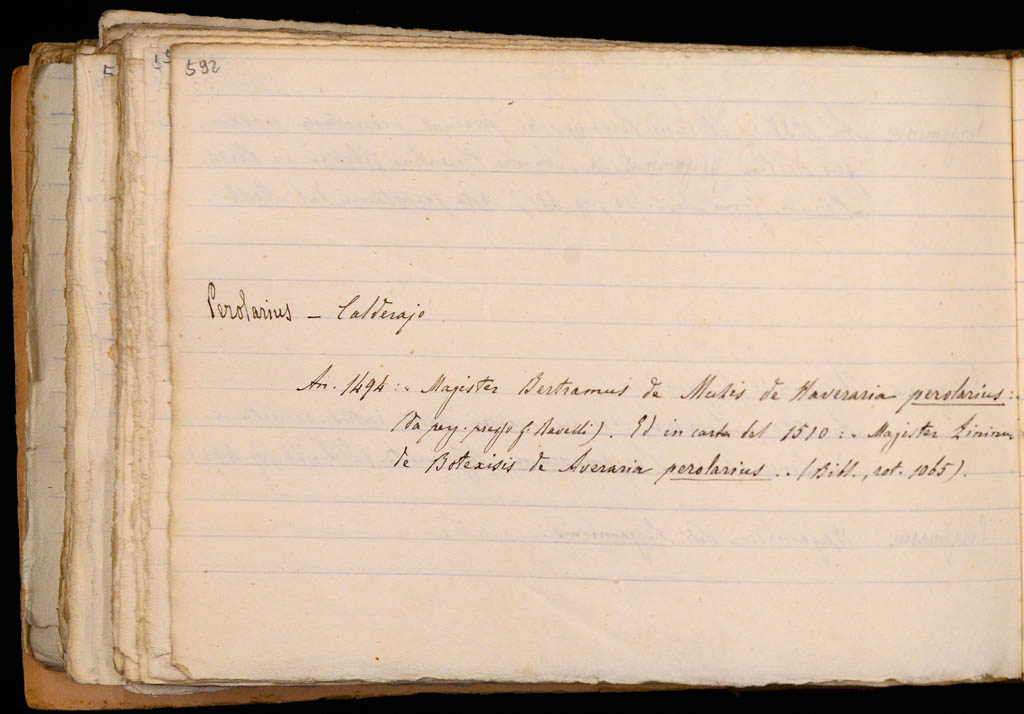 592
Perolarius – Calderajo
An. 1494 : „ Magister Bertramus de de Haveraria perolarius :
(da perg. presso f. Ravelli). Ed in carta del 1510 : „ Magister
de Botexisis de Averaria perolarius .. (Bibl., rot. 1065).